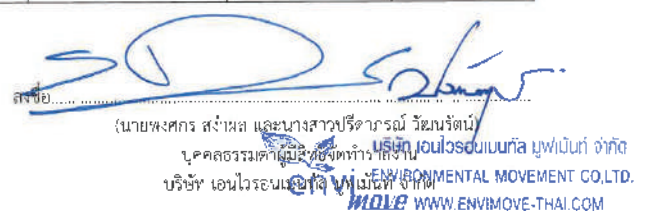 ลงชื่อ
(นายพงศกร สง่าผล และนางสาวปรีดาภรณ์ วัฒนรัตน์)
บุคคลธรรมดาผู้มีสิทธิจัดทำรายงาน
บริษัท เอนไวรอนเมนทัล มูฟเม้นท์ จำกัด
บริษัท เอนไวรอนเมนทัล มูฟเม้นท์ จำกัด
ENVIRONMENTAL MOVEMENT CO.,LTD.
envi move WWW.ENVIMOVE-THAI.COM